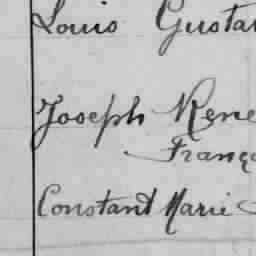 Louis Gustav
Joseph Rene
Franço
Constant Marie